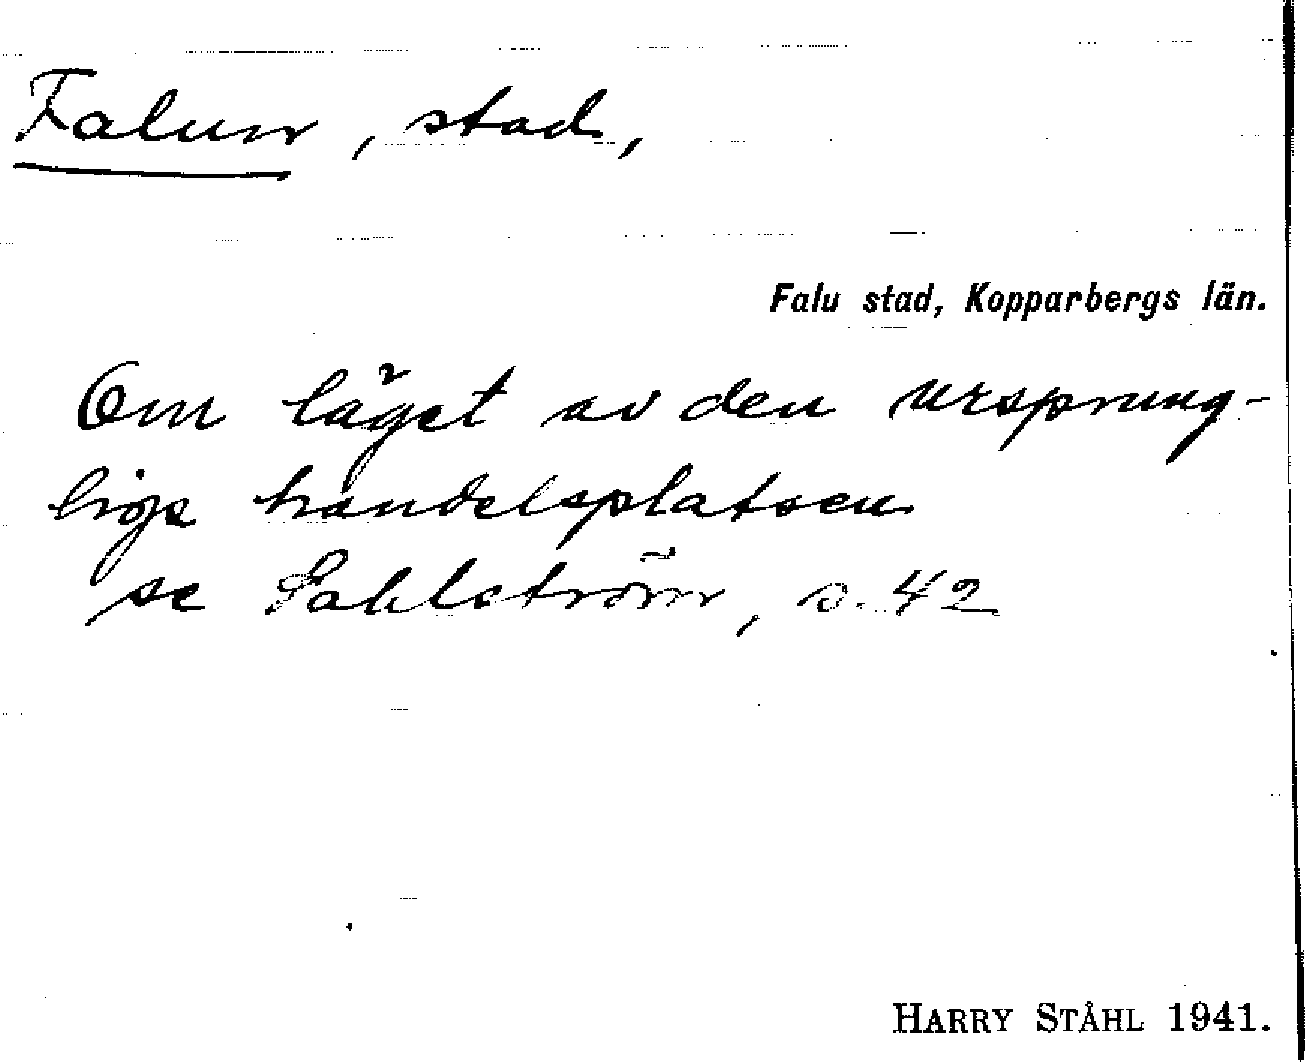 Falun, stad,
Falu stad, Kopparbergs län.
Om läget av den ursprung-
liga handelsplatsen
se Sahlström, s. 42
HARRY STÅHL 1941.